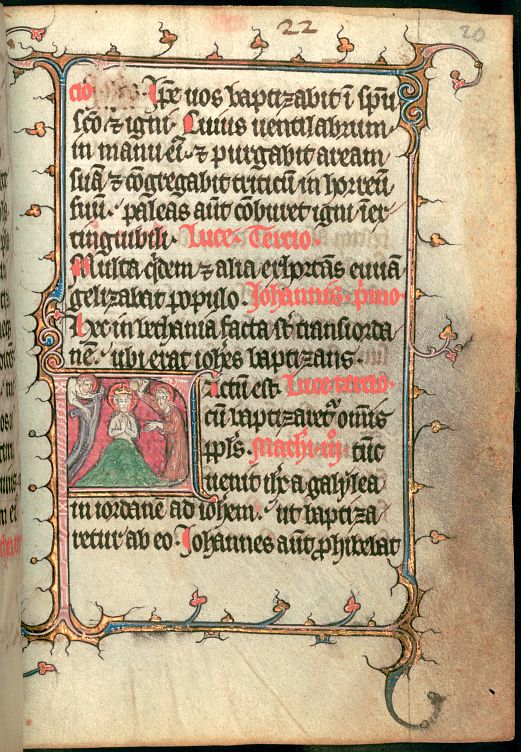 22
20
cio Ip̄e uos baptizabit ī sp̄u
sc̄o ⁊ igni. Cuius uentilabrum
in manu ei⁹ ⁊ purgabit aream
suā ⁊ cōgregabit triticū in horreū
suū. paleas aūt cōburet igni īex
tinguibili. Luce. Tercio.
Multa q̄dem ⁊ alia exhortās euuā
gelizabat populo. Johannis. p̄mo.
Hec in bethania facta st̄ trans iorda
nē. ubi erat ioh̄es baptizans.
Factum est. Luce. tercio.
cū baptizaret̄ omīs
ppl̄s. Mathi. iij. tūc
uenit ih̄c a galylea
in iordanē ad ioh̄em. ut baptiza
retur ab eo. Johannes aūt ꝓhibebat